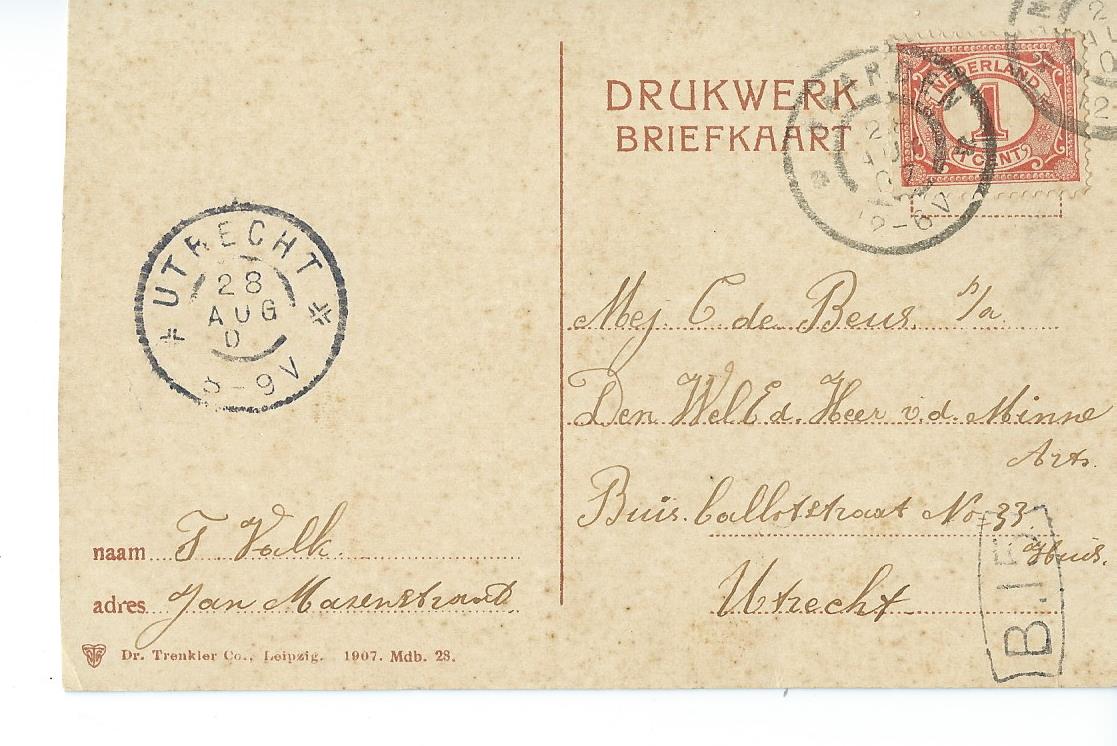 DRUKWERK
BRIEFKAART
NEDERLAND
1
1 CENT
28
AUG
UTRECHT
28
AUG
0
8-9V
Mej. C de Beus. p/a
Den WelEd. Heer v.d. Minne
Arts.
Buis. ballotstraat No 33.
Huis.
Utrecht
naam F. Valk.
adres Jan Masenstraat.
Dr. Trenkler Co., Leipzig. 1907. Mdb. 28.